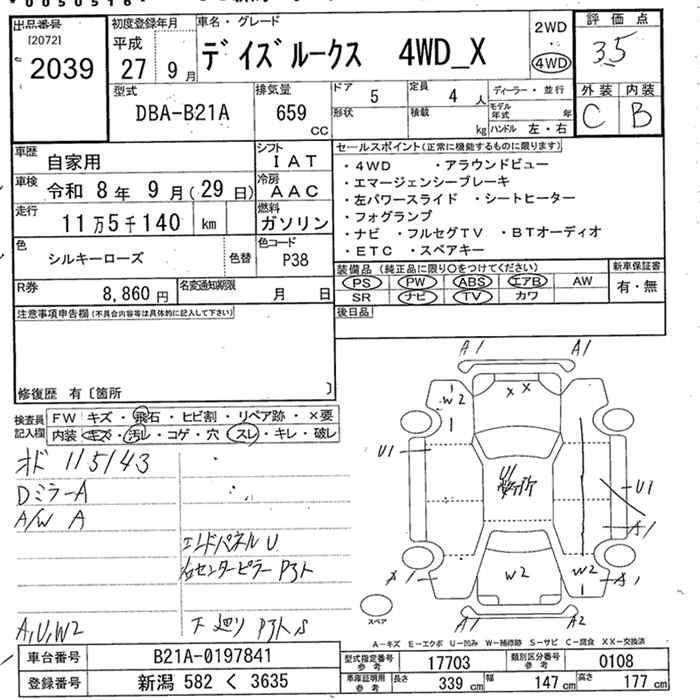 出品番号
[2072]
2039
初度登録年月
平成
27年 9月
車名・グレード
デイズルークス 4WD_X
2WD
4WD
評価点
3.5
外装 内装
C B
型式
DBA-B21A
排気量
659
CC
ドア 5
定員 4 人
形状
積載 kg
ディーラー・並行
モデル年式 年
ハンドル 左・右
車歴 自家用
車検 令和 8年 9月(29日)
走行 11万5千140 km
色 シルキーローズ
色替
シフト IAT
冷房 AAC
燃料 ガソリン
色コード P38
R券 8,860円
名変通知期限 月 日
セールスポイント(正常に機能するものに限ります)
・4WD ・アラウンドビュー
・エマージェンシーブレーキ
・左パワースライド ・シートヒーター
・フォグランプ
・ナビ ・フルセグTV ・BTオーディオ
・ETC ・スペアキー
装備品(純正品に限り〇をつけてください)
PS PW ABS エアB AW
SR ナビ TV カワ
新車保証書
有・無
後日品
注意事項申告欄(不具合内容等は具体的に記入して下さい)
修復歴 有〔箇所 〕
検査員記入欄
FW キズ・飛石・ヒビ割・リペア跡・×要
内装 キズ・汚レ・コゲ・穴・スレ・キレ・破レ
オド 115143
DミラーA
A/W A
エンドパネル U
右センターピラー Pｽﾚ
A,U,W2
下廻り Pｽﾚ S
A1 A1
W2
XX
U1
U1
U1
A1
W2
W2
A1
A2
スペア
A−キズ E−エクボ U−凹み W−補修跡 S−サビ C−腐食 XX−交換済
車台番号 B21A-0197841
登録番号 新潟 582 く 3635
型式指定番号 参考 17703
類別区分番号 参考 0108
車庫証明用 参考 長さ 339cm 幅 147cm 高さ 177cm